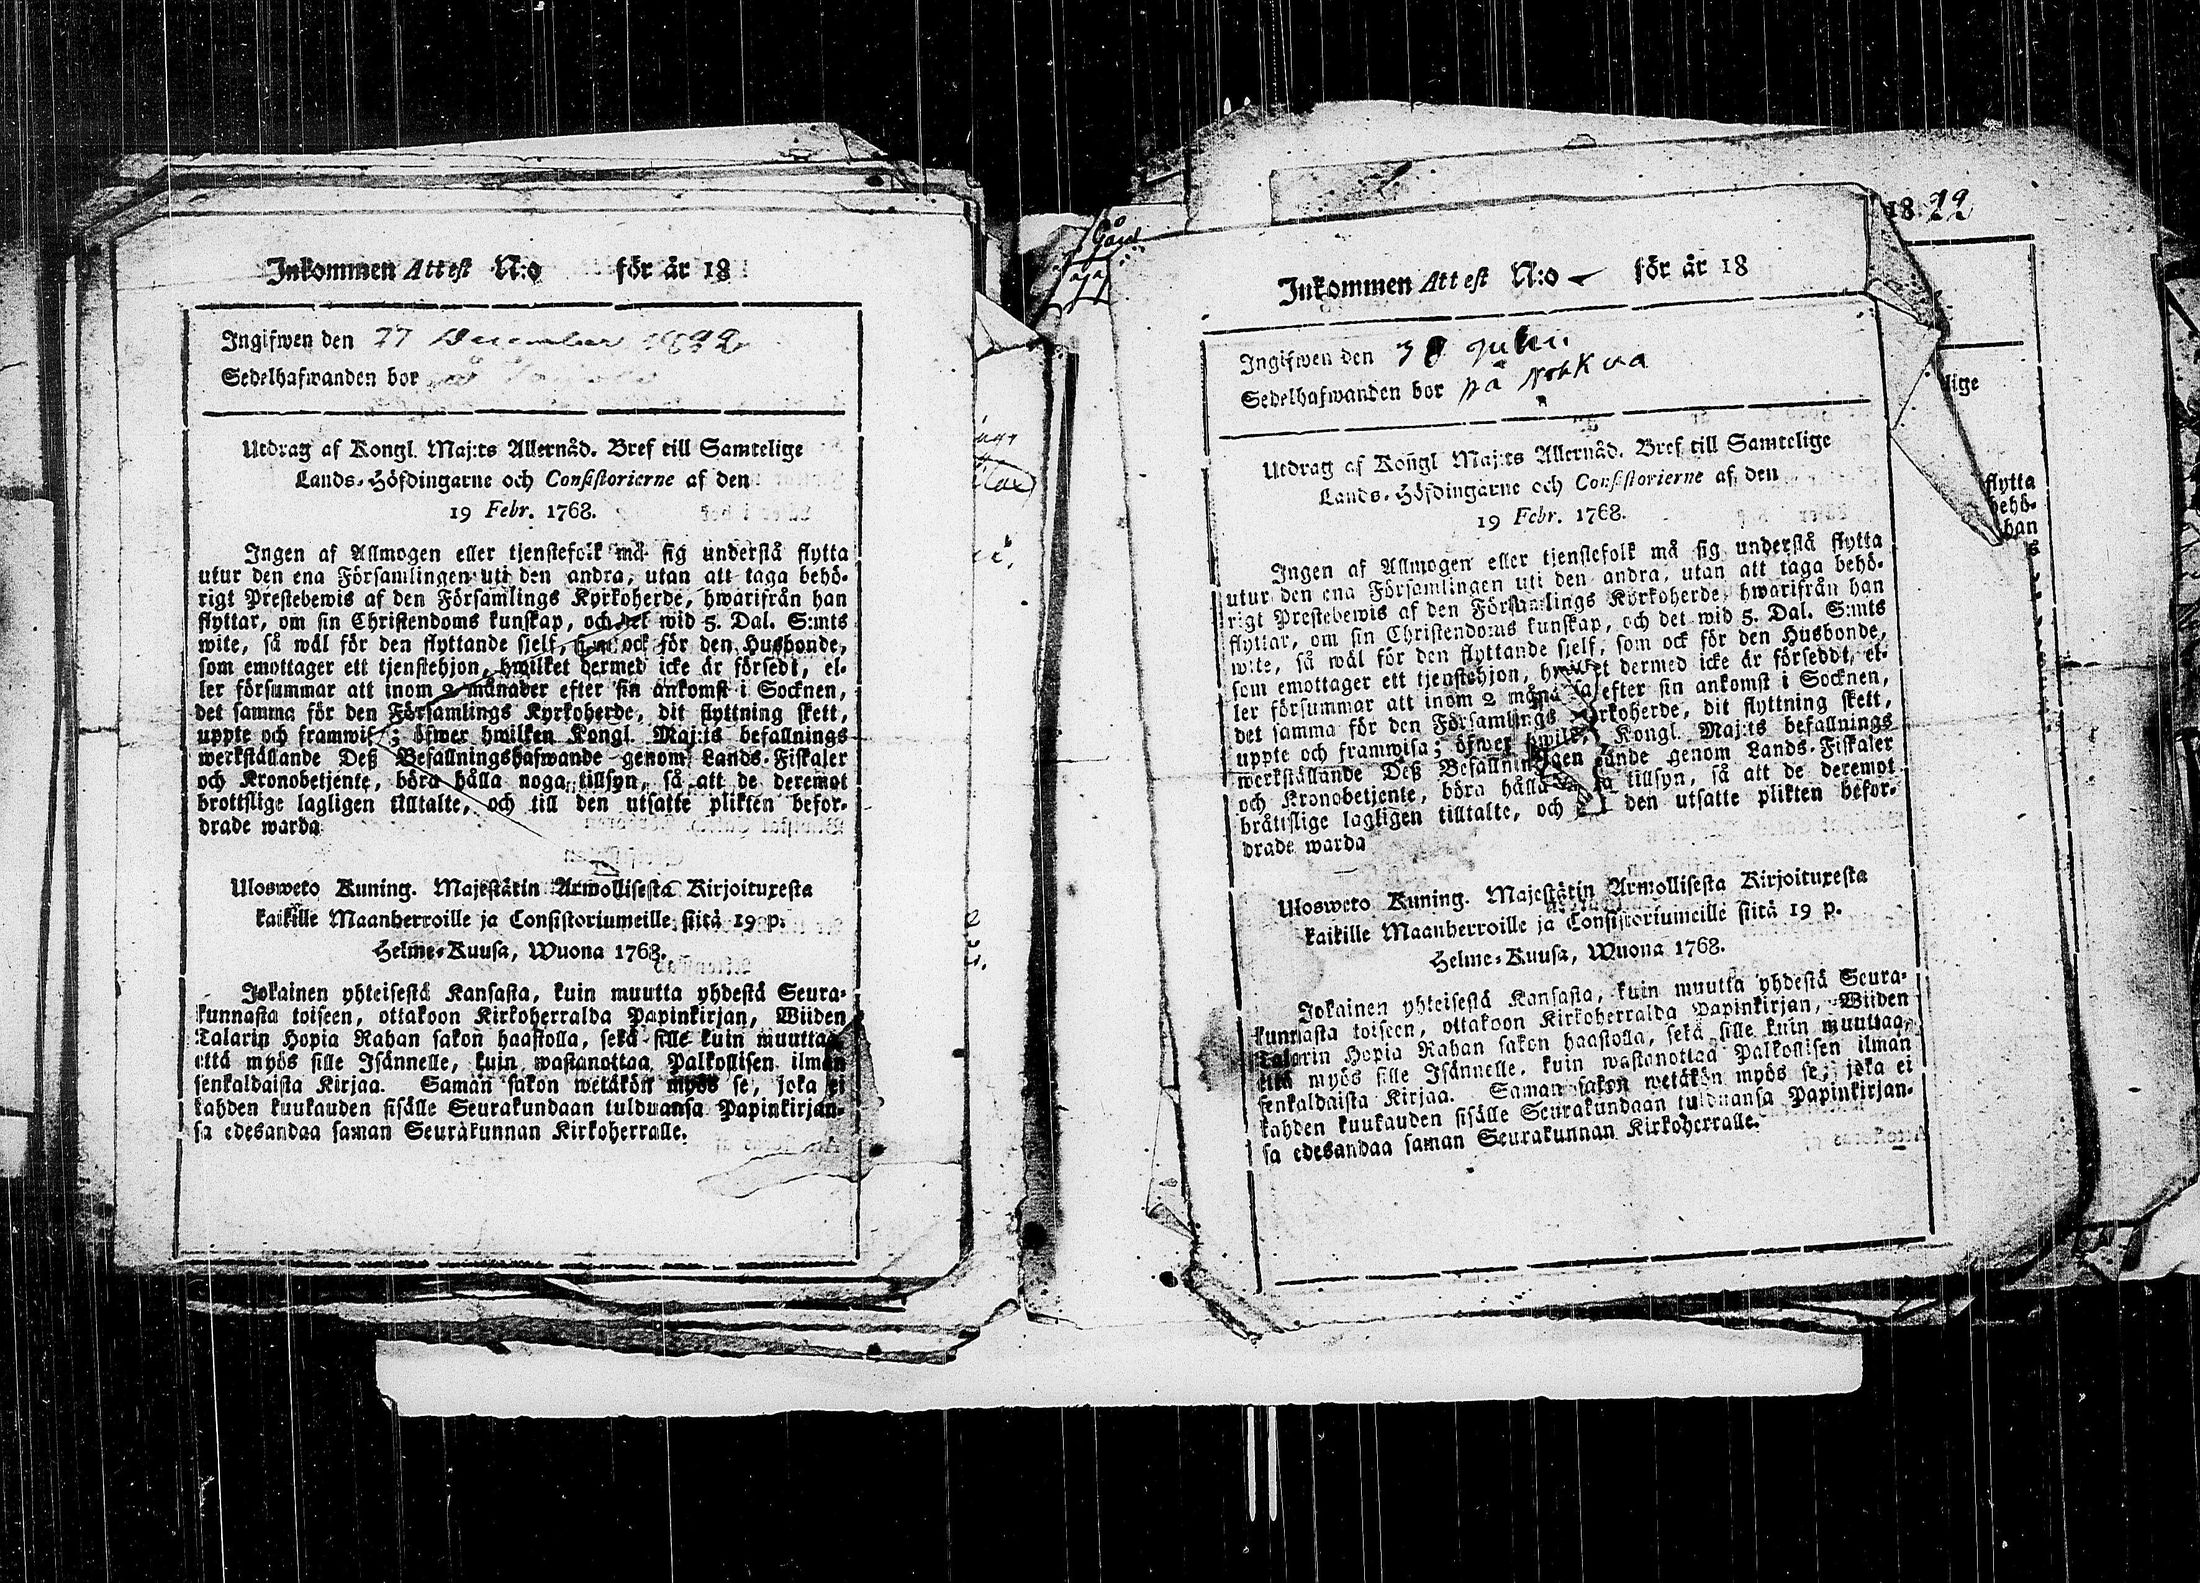 Inkommen Attest N:o för år 18
Ingifwen den 27 December 1822
Sedelhafwanden bor
Utdrag af Kongl. Maj:ts Allernåd. Bref till Samtelige
Lands-Höfdingarne och Consistorierne af den
19 Febr. 1768.
Ingen af Allmogen eller tjenstefolk må sig understå flytta
utur den ena Församlingen uti den andra, utan att taga behö-
rigt Prestebewis af den Församlings Kyrkoherde, hwarifrån han
flyttar, om sin Christendoms kunskap, och det wid 5. Dal. S:mts
wite, så wäl för den flyttande sjelf, som ock för den Husbonde,
som emottager ett tjenstehjon, hwilket dermed icke är försedt, el-
ler försummar att inom 2 månader efter sin ankomst i Socknen,
det samma för den Församlings Kyrkoherde, dit flyttning skett,
uppte och framwisa; öfwer hwilken Kongl. Maj:ts befallnings
werkställande Deß Befallningshafwande genom Lands-Fiskaler
och Kronobetjente, böra hålla noga tillsyn, så att de deremot
brottslige lagligen tilltalte, och till den utsatte plikten befor-
drade warda
Ulosweto Kuning. Majestätin Armollisesta Kirjoituxesta
kaikille Maanherroille ja Consistoriumeille siitä 19 p.
Helme-Kuusa, Wuona 1768.
Jokainen yhteisestä Kansasta, kuin muutta yhdestä Seura-
kunnasta toiseen, ottakoon Kirkoherralda Papinkirjan, Wiiden
Talarin Hopia Rahan sakon haastolla, sekä sille kuin muuttaa,
että myös sille Isännelle, kuin wastanottaa Palkollisen ilman
senkaldaista Kirjaa. Saman sakon wetäkön myös se, joka ei
kahden kuukauden sisälle Seurakundaan tulduansa Papinkirjan-
sa edesandaa saman Seurakunnan Kirkoherralle.
Gård
18 22
Inkommen Attest N:o för år 18
Ingifwen den 30 Julii
Sedelhafwanden bor på Nokkua
Utdrag af Kongl Maj:ts Allernåd. Bref till Samtelige
Lands-Höfdingarne och Consistorierne af den
19 Febr. 1768.
Ingen af Allmogen eller tjenstefolk må sig understå flytta
utur den ena Församlingen uti den andra, utan att taga behö-
rigt Prestebewis af den Församlings Kyrkoherde, hwarifrån han
flyttar, om sin Christendoms kunskap, och det wid 5. Dal. S:mts
wite, så wäl för den flyttande sjelf, som ock för den Husbonde,
som emottager ett tjenstehjon, hwilket dermed icke är förseddt, el-
ler försummar att inom 2 måna efter sin ankomst i Socknen,
det samma för den Församlings Kyrkoherde, dit flyttning skett,
uppte och framwisa; öfwer hwilken Kongl. Maj:ts befallnings
werkställande Deß Befallningen genom Lands-Fiskaler
och Kronobetjente, böra hålla tillsyn, så att de deremot
bråttslige lagligen tilltalte, och den utsatte plikten befor-
drade warda
Ulosweto Kuning. Majestätin Armollisesta Kirjoituxesta
kaikille Maanherroille ja Consistoriumeille siitä 19 p.
Helme-Kuusa, Wuona 1768.
Jokainen yhteisestä Kansasta, kuin muutta yhdestä Seura-
kunnasta toiseen, ottakoon Kirkoherralda Papinkirjan, Wiiden
Talarin Hopia Rahan sakon haastolla, sekä sille kuin muuttaa,
että myös sille Isännelle, kuin wastanottaa Palkollisen ilman
senkaldaista Kirjaa. Saman sakon wetäkön myös se, joka ei
kahden kuukauden sisälle Seurakundaan tulduansa Papinkirjan-
sa edesandaa saman Seurakunnan Kirkoherralle.
lige
flytta
behö-
han